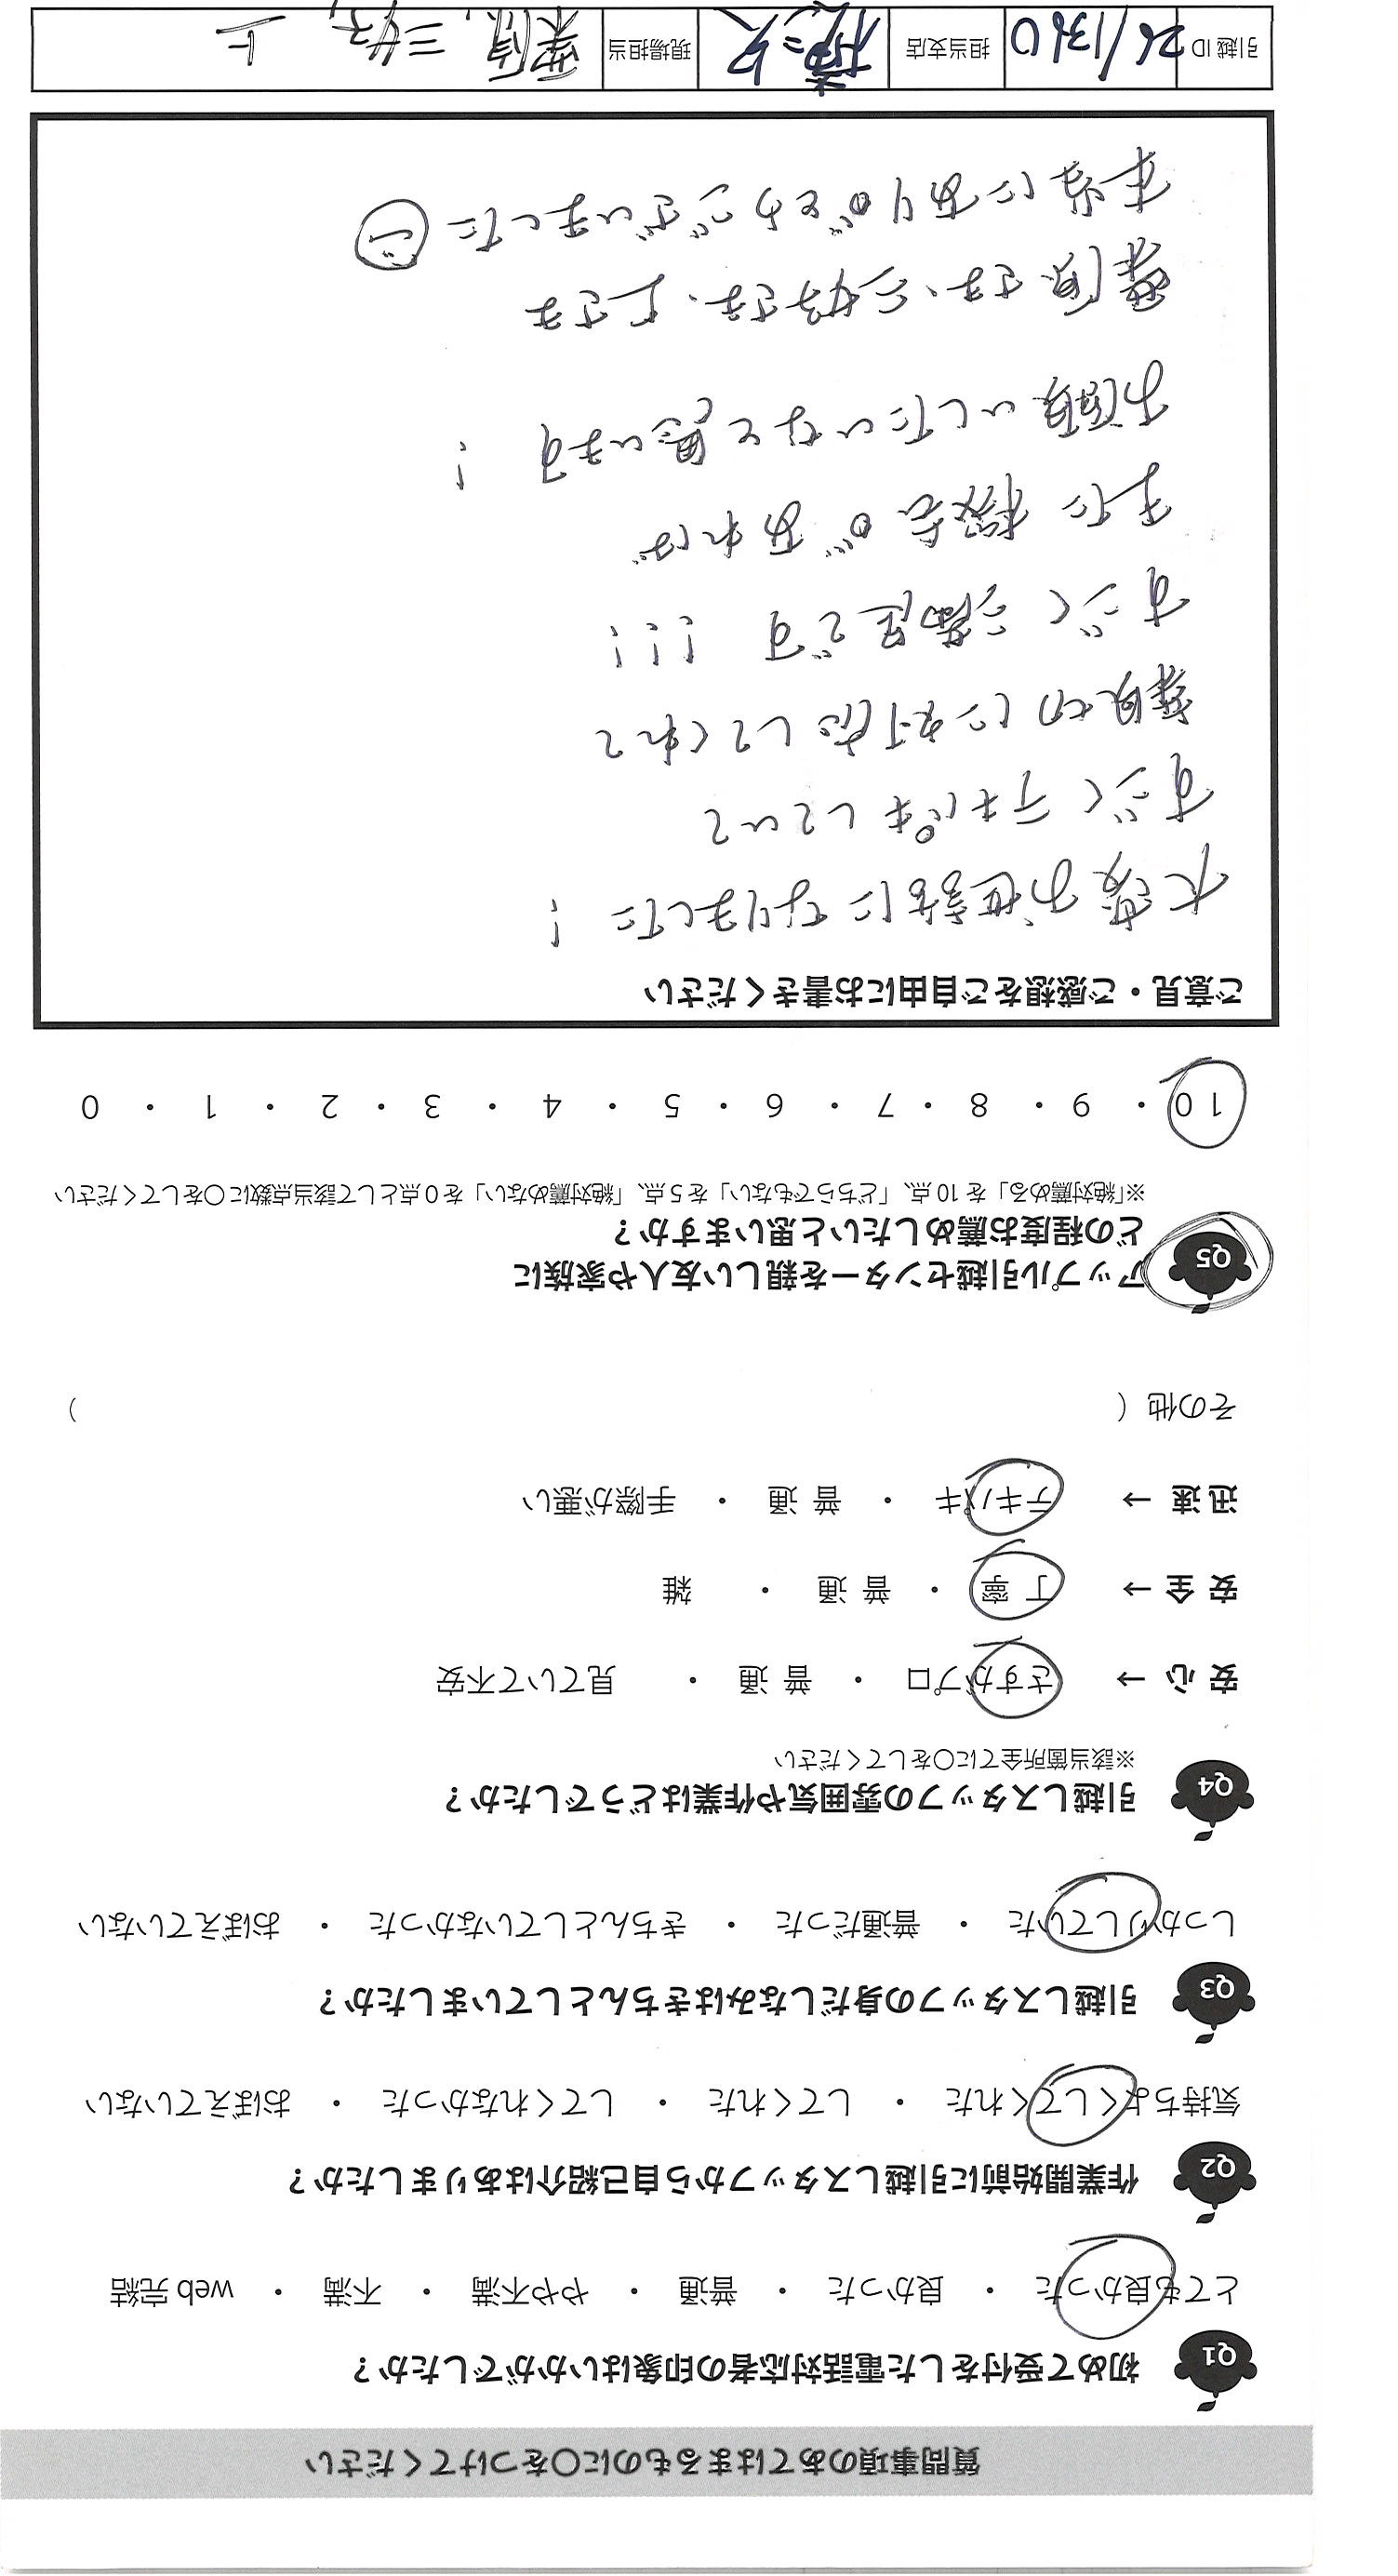 質問事項のあてはまるものに〇をつけてください
Q1 初めて受付をした電話対応者の印象はいかがでしたか？
とても良かった ・ 良かった ・ 普通 ・ やや不満 ・ 不満 ・ web 完結
Q2 作業開始前に引越しスタッフから自己紹介はありましたか？
気持ちよくしてくれた ・ してくれた ・ してくれなかった ・ おぼえていない
Q3 引越しスタッフの身だしなみはきちんとしていましたか？
しっかりしていた ・ 普通だった ・ きちんとしていなかった ・ おぼえていない
Q4 引越しスタッフの雰囲気や作業はどうでしたか？
※該当箇所全てに〇をしてください
安 心 → さすがプロ ・ 普 通 ・ 見ていて不安
安 全 → 丁 寧 ・ 普 通 ・ 雑
迅 速 → テキパキ ・ 普 通 ・ 手際が悪い
その他（ ）
Q5 アップル引越センターを親しい友人や家族に
どの程度お薦めしたいと思いますか？
※「絶対薦める」を 10 点、「どちらでもない」を 5 点、「絶対薦めない」を 0 点として該当点数に〇をしてください
10 ・ 9 ・ 8 ・ 7 ・ 6 ・ 5 ・ 4 ・ 3 ・ 2 ・ 1 ・ 0
ご意見・ご感想をご自由にお書きください
大変お世話になりました！
すごくテキパキしていて
親切に対応してくれて
すごく満足です！！！
また機会があれば
お願いしたいなと思います！
様、三好さま、上さま
本当にありがとうございました
引越 ID 26/1360 担当支店 現場担当 三好, 上